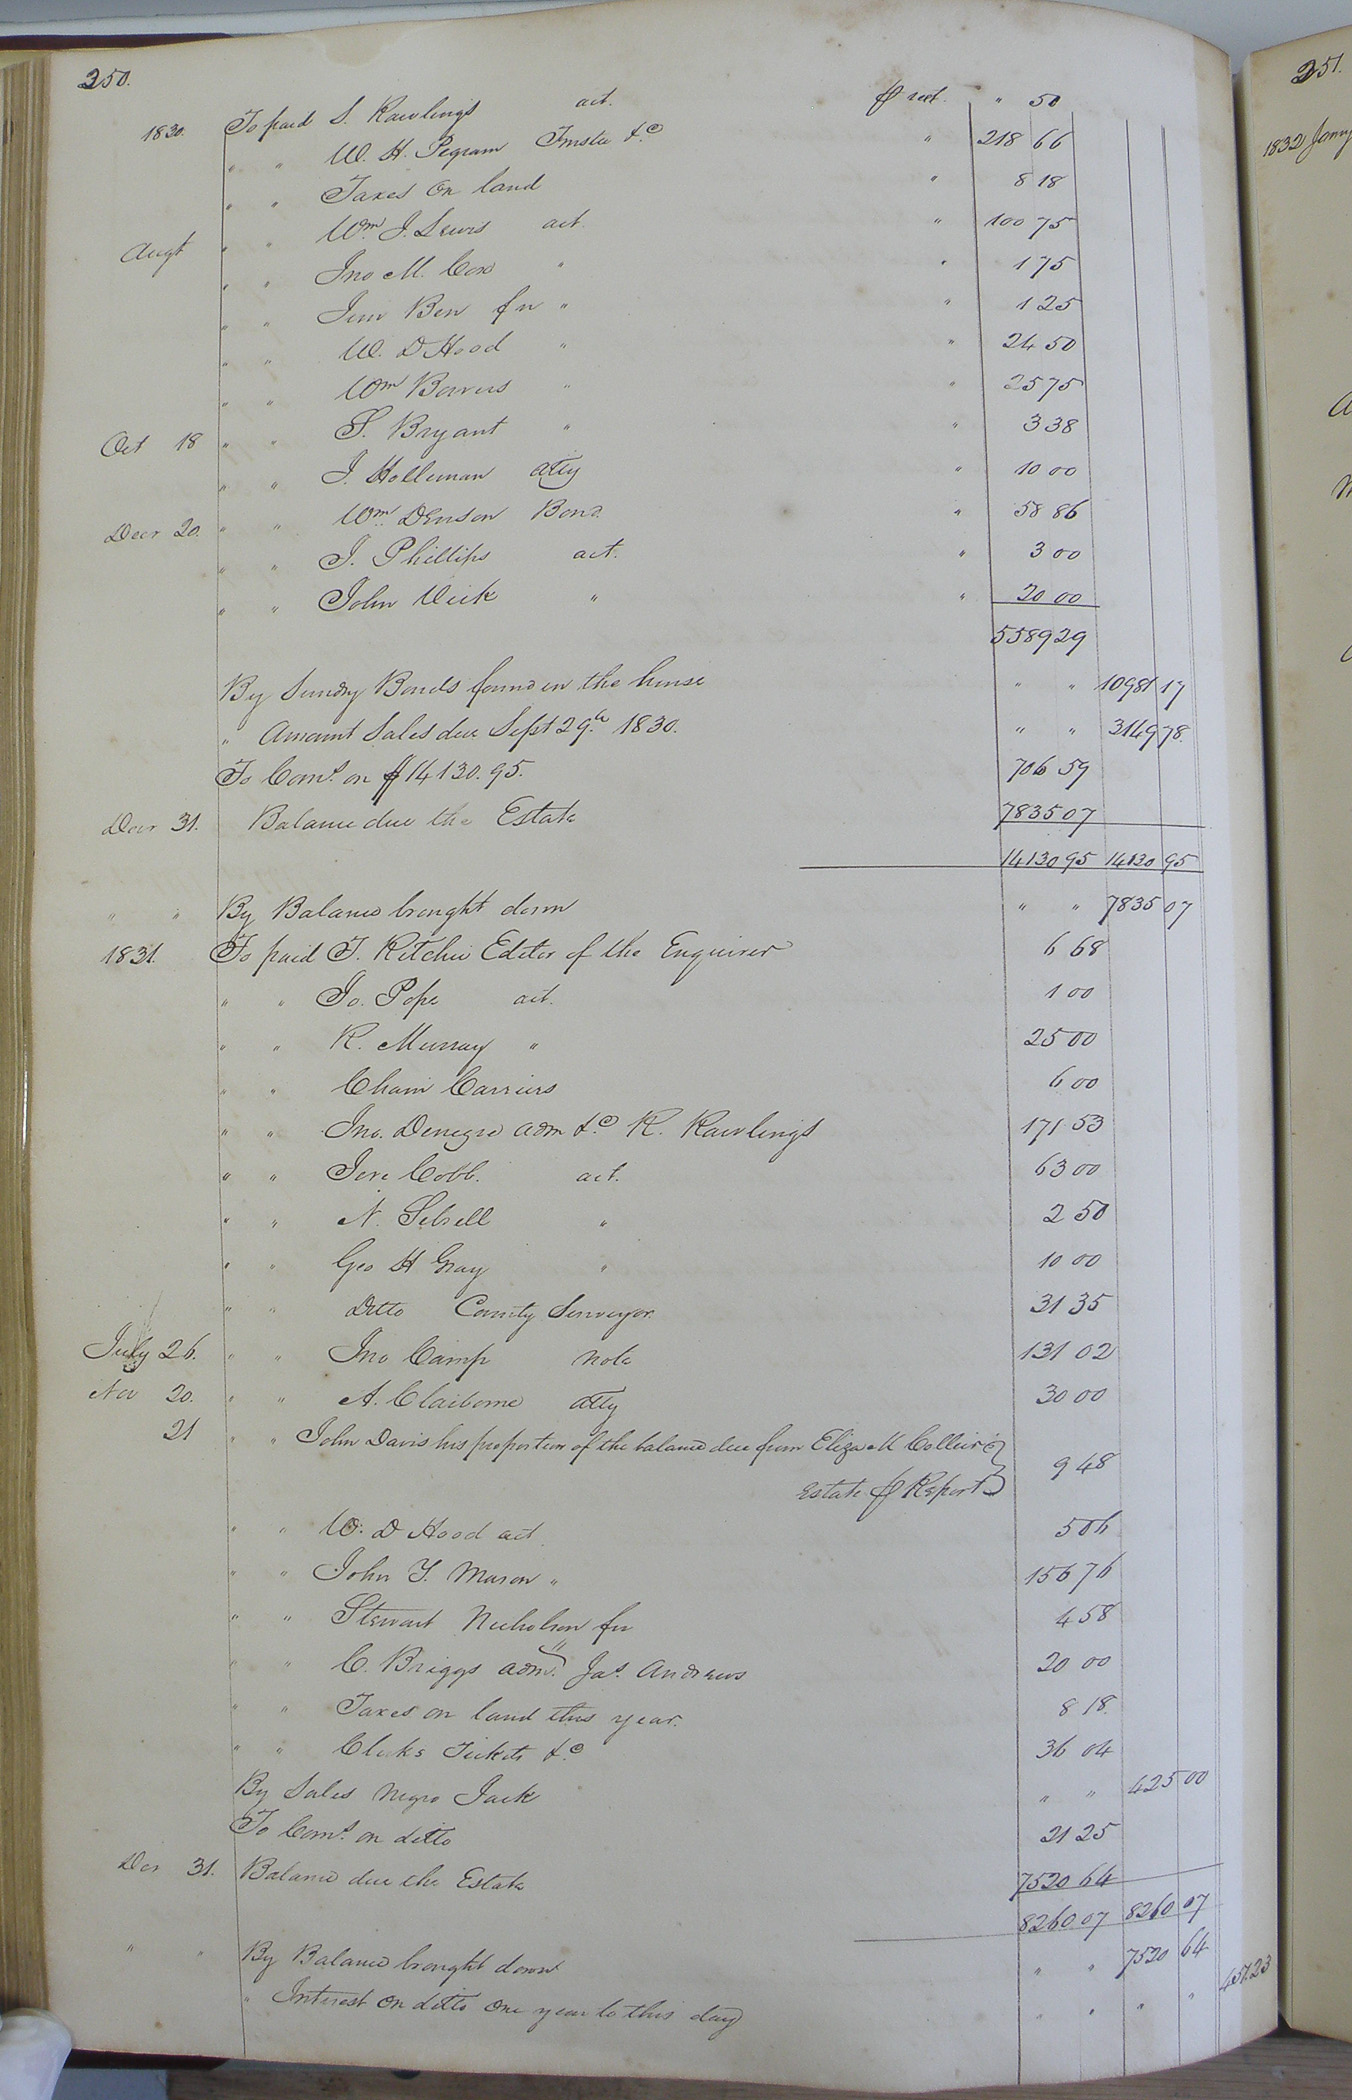 250.
1830. To paid S. Rawlings act. ⅌ rect. " 50
" " W. H. Pegram Trustee &c " 218 66
" " Taxes on land " 8 18
Augt " " Wm J. Lewis act. " 100 75
" " Jno M. Cox " " 1 75
" " Jem Ben fn " " 1 25
" " W. D Hood " " 24 50
" " Wm Bowers " " 25 75
Oct 18 " " S. Bryant " " 3 38
" " J. Holleman atty " 10 00
Decr 20. " " Wm Denson Bond " 58 86
" " J. Phillips act. " 3 00
" " John Vick " " 20 00
5589 29
By Sundry Bonds found in the house " " 10981 17
" Amount Sales due Sept 29th 1830. " " 3149 78.
To Coms. on $14130.95. 706 59
Decr 31. Balance due the Estate 7835 07
14130 95 14130 95
" " By Balance brought down " " 7835 07
1831. To paid T. Ritchie Editor of the Enquirer 6 68
" " Jo. Pope act. 1 00
" " R. Murray " 25 00
" " Chain Carriers 6 00
" " Jno. Denegre adm &c R. Rawlings 171 53
" " Jere Cobb. act. 63 00
" " N. Sebrell " 2 50
" " Geo H Gray " 10 00
" " Ditto County Surveyor. 31 35
July 26. " " Jno Camp note 131 02
Nov 20. " " A. Claiborne atty 30 00
21 " " John Davis his proportion of the balance due from Eliza M Collier's
Estate ⅌ Report 9 48
" " W. D Hood act. 5 06
" " John Y. Mason " 156 76
" " Stewart Nicholson fn 4 58
" " C. Briggs adm. Jas. Andrews 20 00
" " Taxes on land this year. 8 18.
" " Clerks Tickets &c 36 04
By Sales Negro Jack " " 425 00
To Coms. on ditto 21 25
Dec 31. Balance due the Estate 7520 64
8260 07 8260 07
" " By Balance brought down " " 7520 64
" Interest on ditto one year to this day " " " " 457.23
251.
1832 Jany